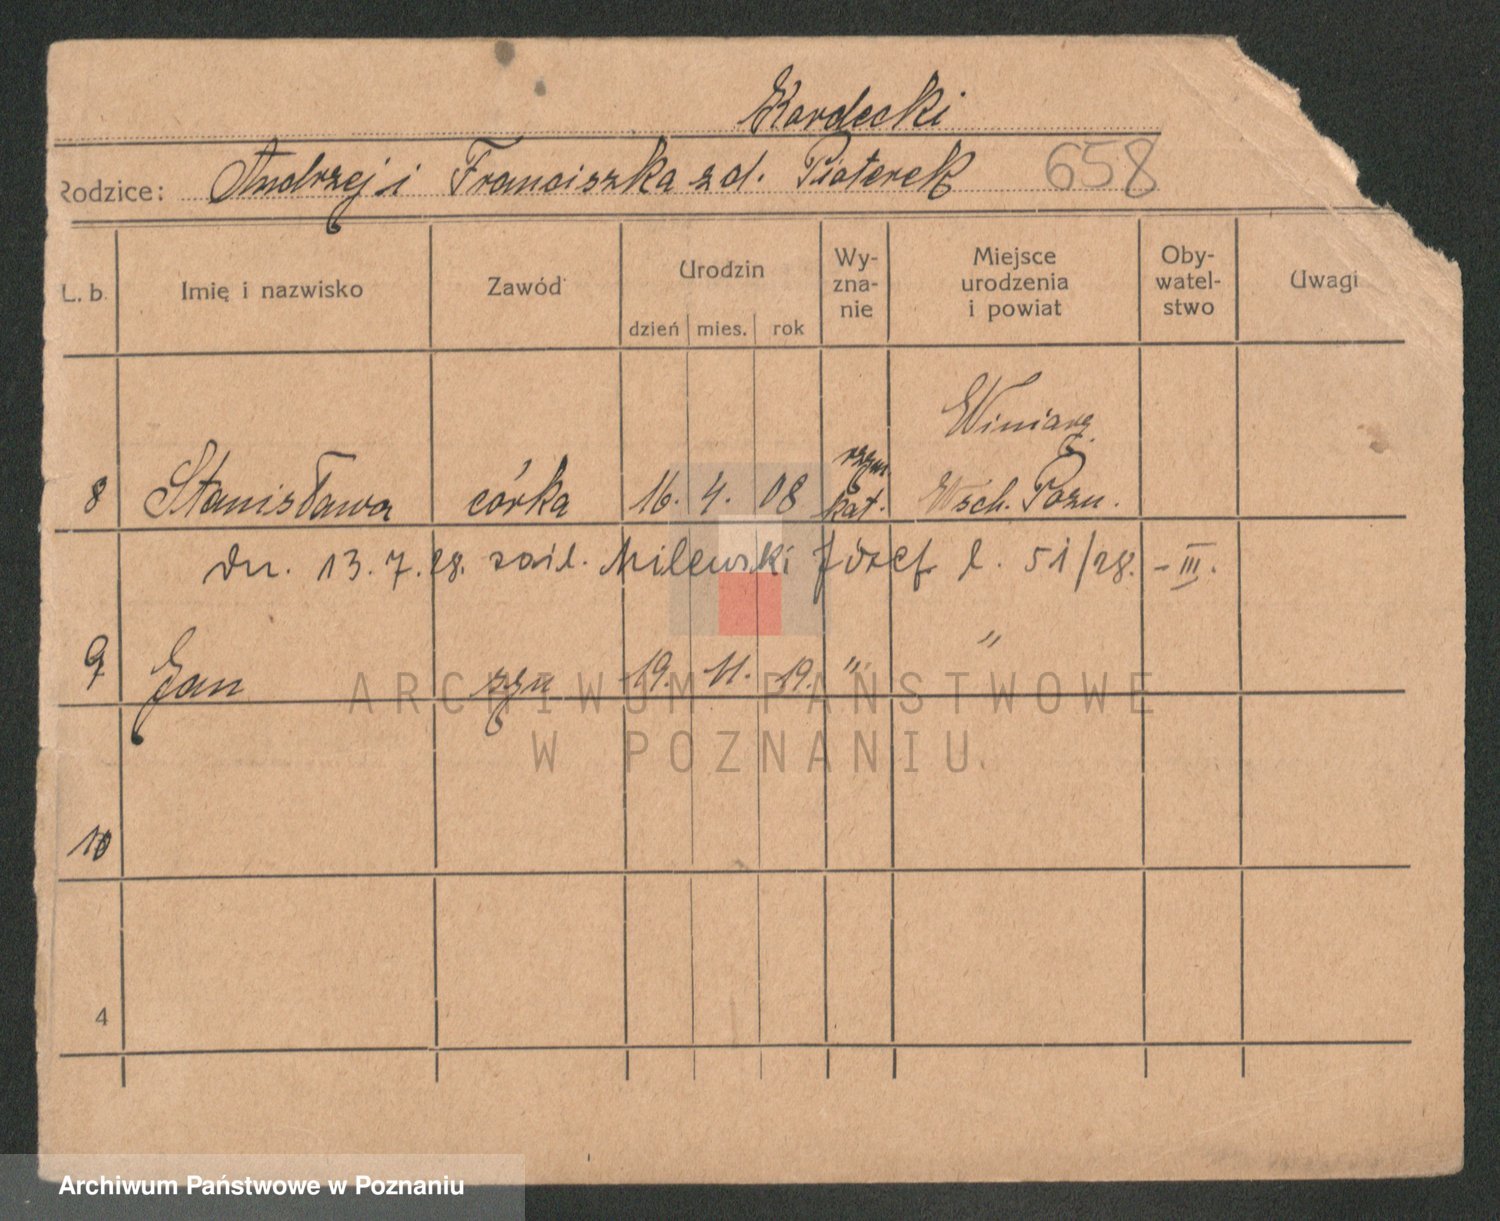 Kordecki
Rodzice: Andrzej i Franciszka z d. Pioterek 658
L. b. Imię i nazwisko Zawód Urodzin dzień mies. rok Wy-zna-nie Miejsce urodzenia i powiat Oby-watel-stwo Uwagi
Winiary
8 Stanisława córka 16. 4. 08 rzym. kat. Wsch. Pozn.
dn. 13.7.28. zaśl. Milewski Józef l. 51/28. - III.
9 Jan syn 19. 11. 19. " "
10
4
ARCHIWUM PAŃSTWOWE
W POZNANIU
Archiwum Państwowe w Poznaniu